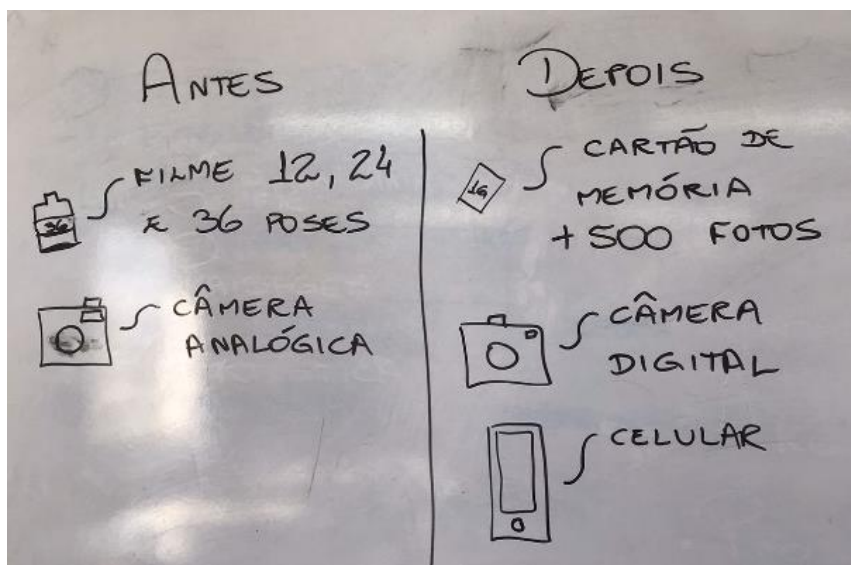 ANTES
FILME 12, 24
E 36 POSES
36
CÂMERA
ANALÓGICA
DEPOIS
CARTÃO DE
MEMÓRIA
+ 500 FOTOS
1G
CÂMERA
DIGITAL
CELULAR